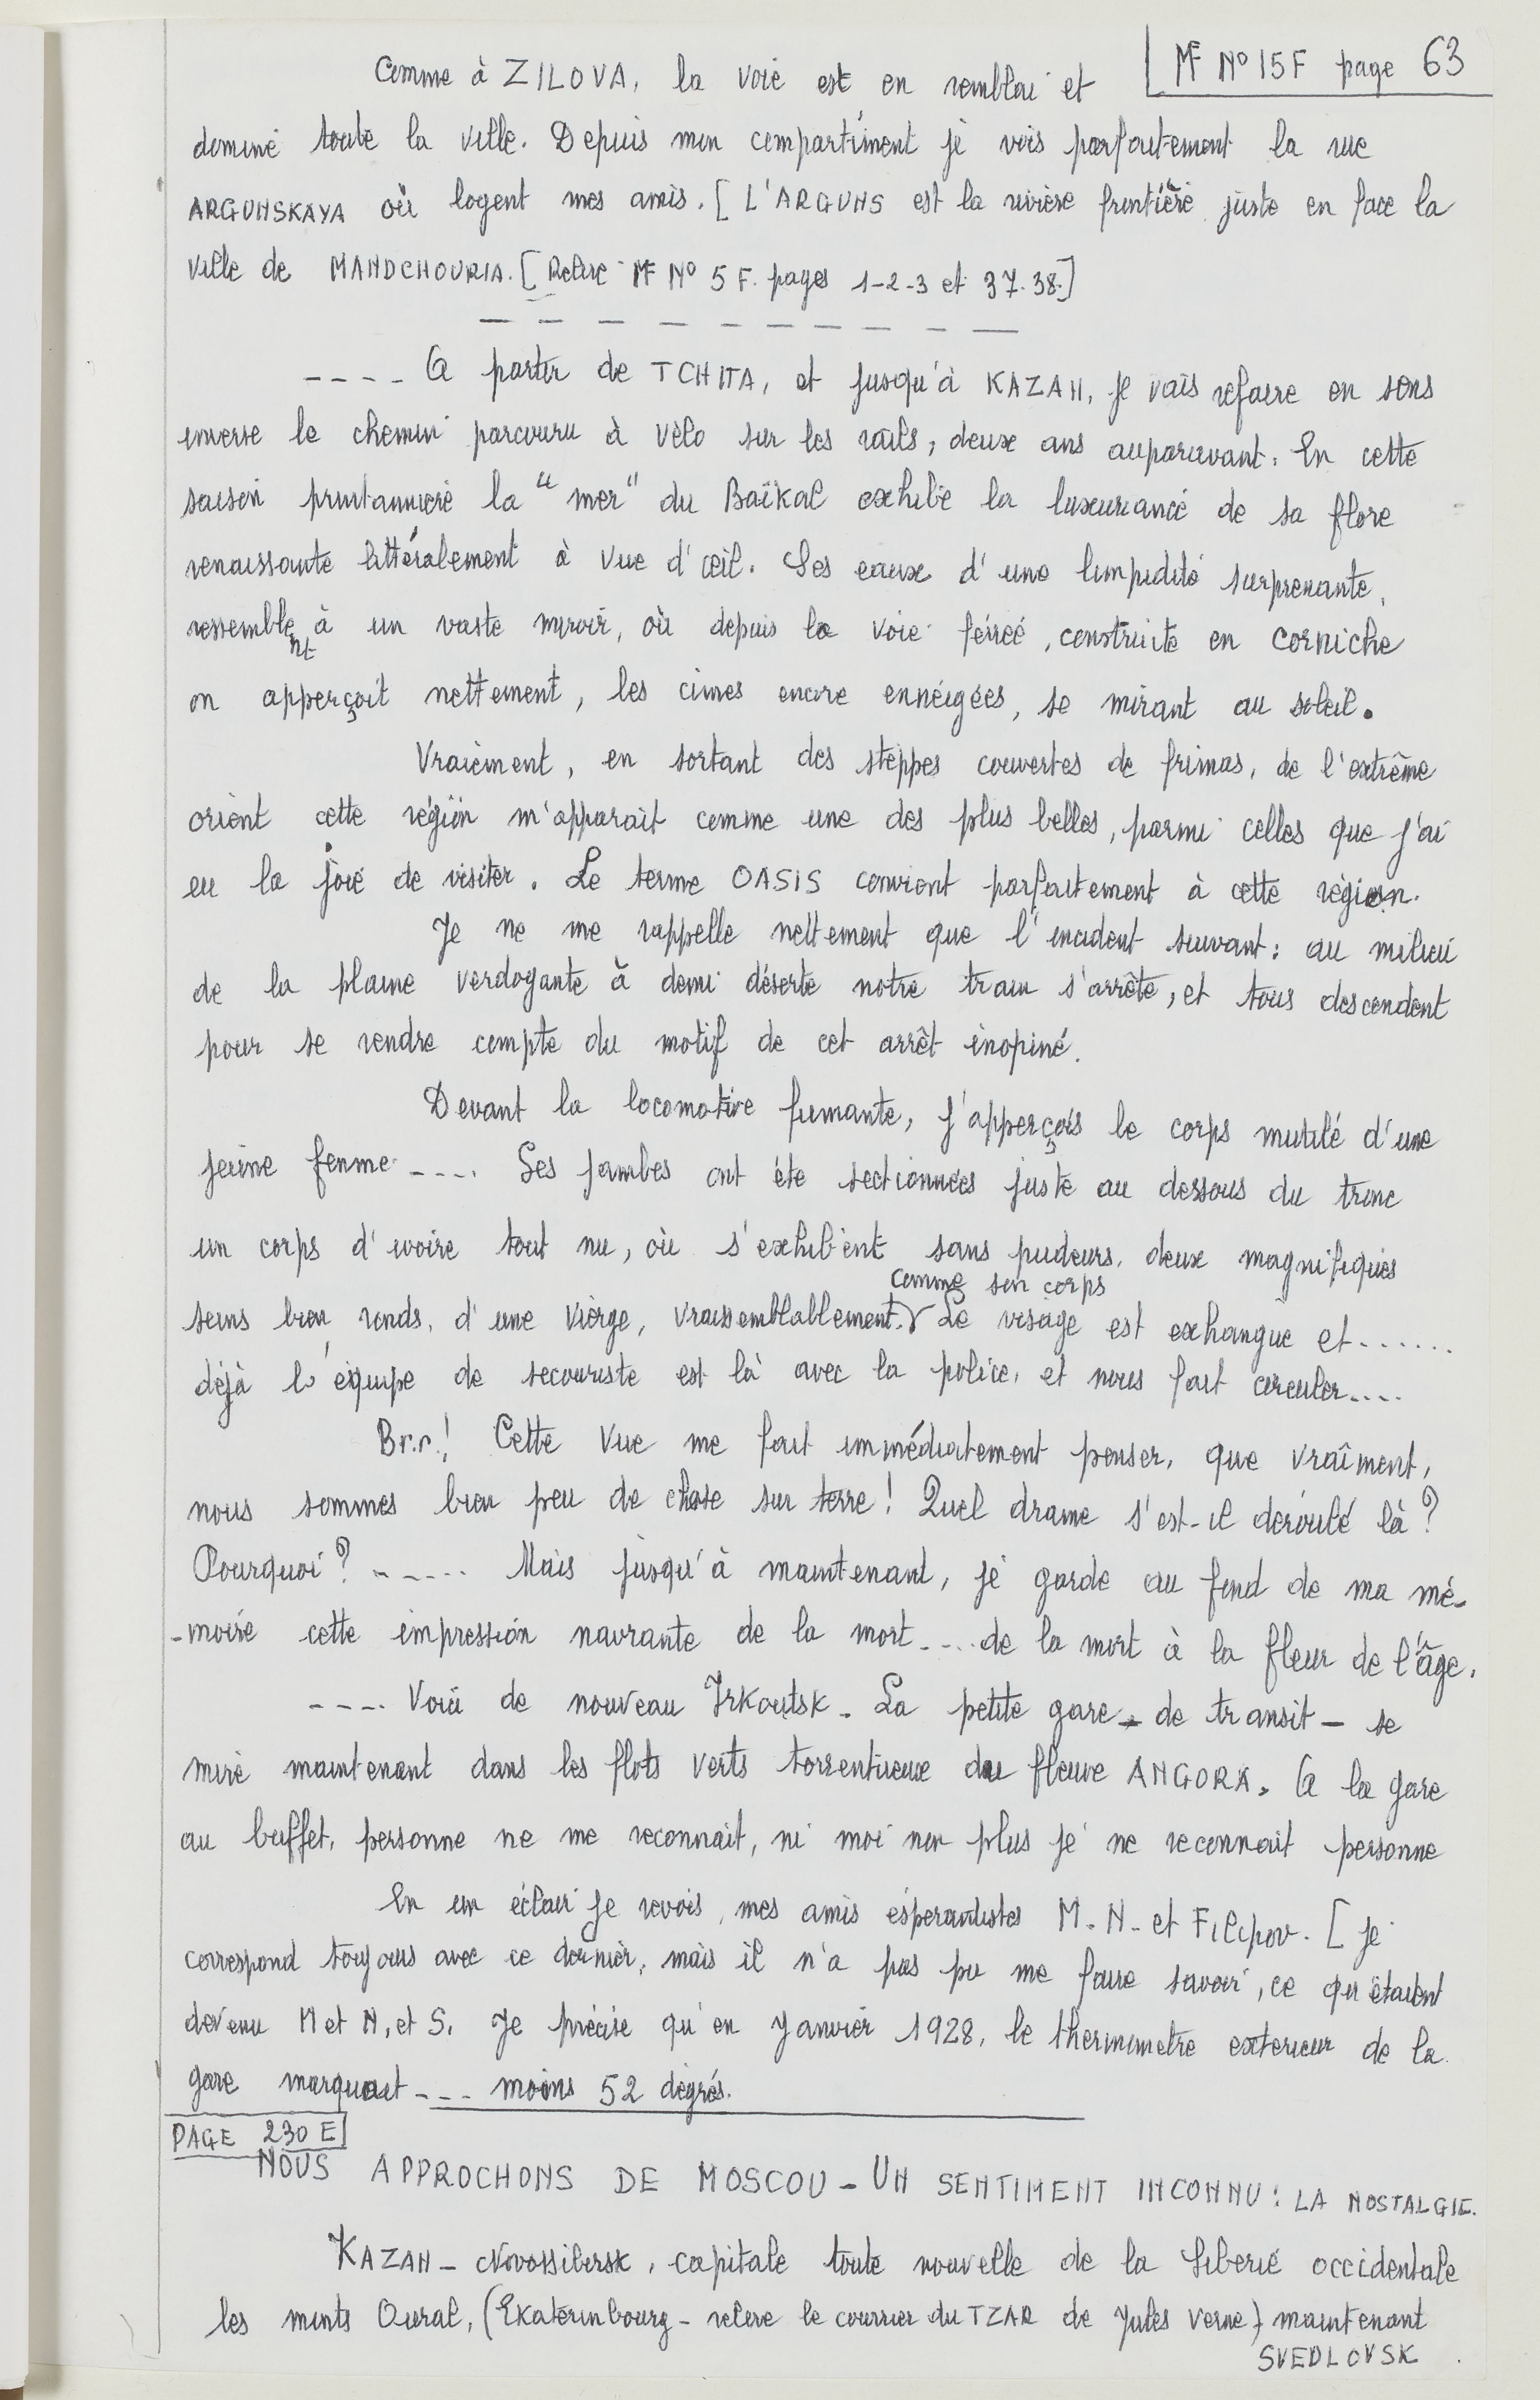 MF N° 15 F page 63
Comme à ZILOVA, la voie est en remblai et
domine toute la ville. Depuis mon compartiment je vois parfaitement la rue
ARGUNSKAYA où logent mes amis. [ L'ARGUNS est la rivière frontière juste en face la
ville de MANDCHOURIA. [ Relire MF N° 5 F. pages 1-2-3 et 37.38.]
---- A partir de TCHITA, et jusqu'à KAZAN, je vais refaire en sens
inverse le chemin parcouru à vélo sur les rails, deux ans auparavant. En cette
saison printannière la "mer" du Baïkal exhibe la luxuriance de sa flore
renaissante littéralement à vue d'œil. Ses eaux d'une limpidité surprenante,
ressemblent à un vaste miroir, où depuis la voie ferrée, construite en corniche
on apperçoit nettement, les cimes encore ennéigées, se mirant au soleil.
Vraiement, en sortant des steppes couvertes de frimas, de l'extrême
orient cette région m'apparait comme une des plus belles, parmi celles que j'ai
eu la joie de visiter. Le terme OASIS convient parfaitement à cette région.
Je ne me rappelle nettement que l'incident suivant: au milieu
de la plaine verdoyante à demi déserte notre train s'arrête, et tous descendent
pour se rendre compte du motif de cet arrêt inopiné.
Devant la locomotive fumante, j'apperçois le corps mutilé d'une
jeune femme ---- Ses jambes ont été sectionnées juste au dessous du tronc
un corps d'ivoire tout nu, où s'exhibent sans pudeurs, deux magnifiques
comme son corps
seins bien ronds, d'une vierge, vraissemblablement. Le visage est exhangue et......
déjà l'équipe de secouriste est là avec la police, et nous fait circuler....
Br.r.! Cette vue me fait immédiatement penser, que vraîment,
nous sommes bien peu de chose sur terre! Quel drame s'est-il déroulé là?
Pourquoi? ------ Mais jusqu'à maintenant, je garde au fond de ma mé-
-moire cette impression navrante de la mort .... de la mort à la fleur de l'âge.
---- Voici de nouveau Irkoutsk - La petite gare - de transit - se
mire maintenant dans les flots verts torrentueux du fleuve ANGORA. A la gare
au buffet, personne ne me reconnait, ni moi non plus je ne reconnait personne
En un éclair je revois, mes amis espérantistes M. N. et Filipov. [ je
correspond toujours avec ce dernier, mais il n'a pas pu me faire savoir, ce qu'étaient
devenu M et N, et S. Je précise qu'en Janvier 1928, le thermometre exterieur de la
gare marquait --- moins 52 dégrés.
PAGE 230 E]
NOUS APPROCHONS DE MOSCOU - UN SENTIMENT INCONNU: LA NOSTALGIE.
KAZAN - Novossibersk, capitale toute nouvelle de la Siberie occidentale
les monts Oural, (Ekaterinbourg - relire le courrier du TZAR de Jules Verne) maintenant
SVEDLOVSK